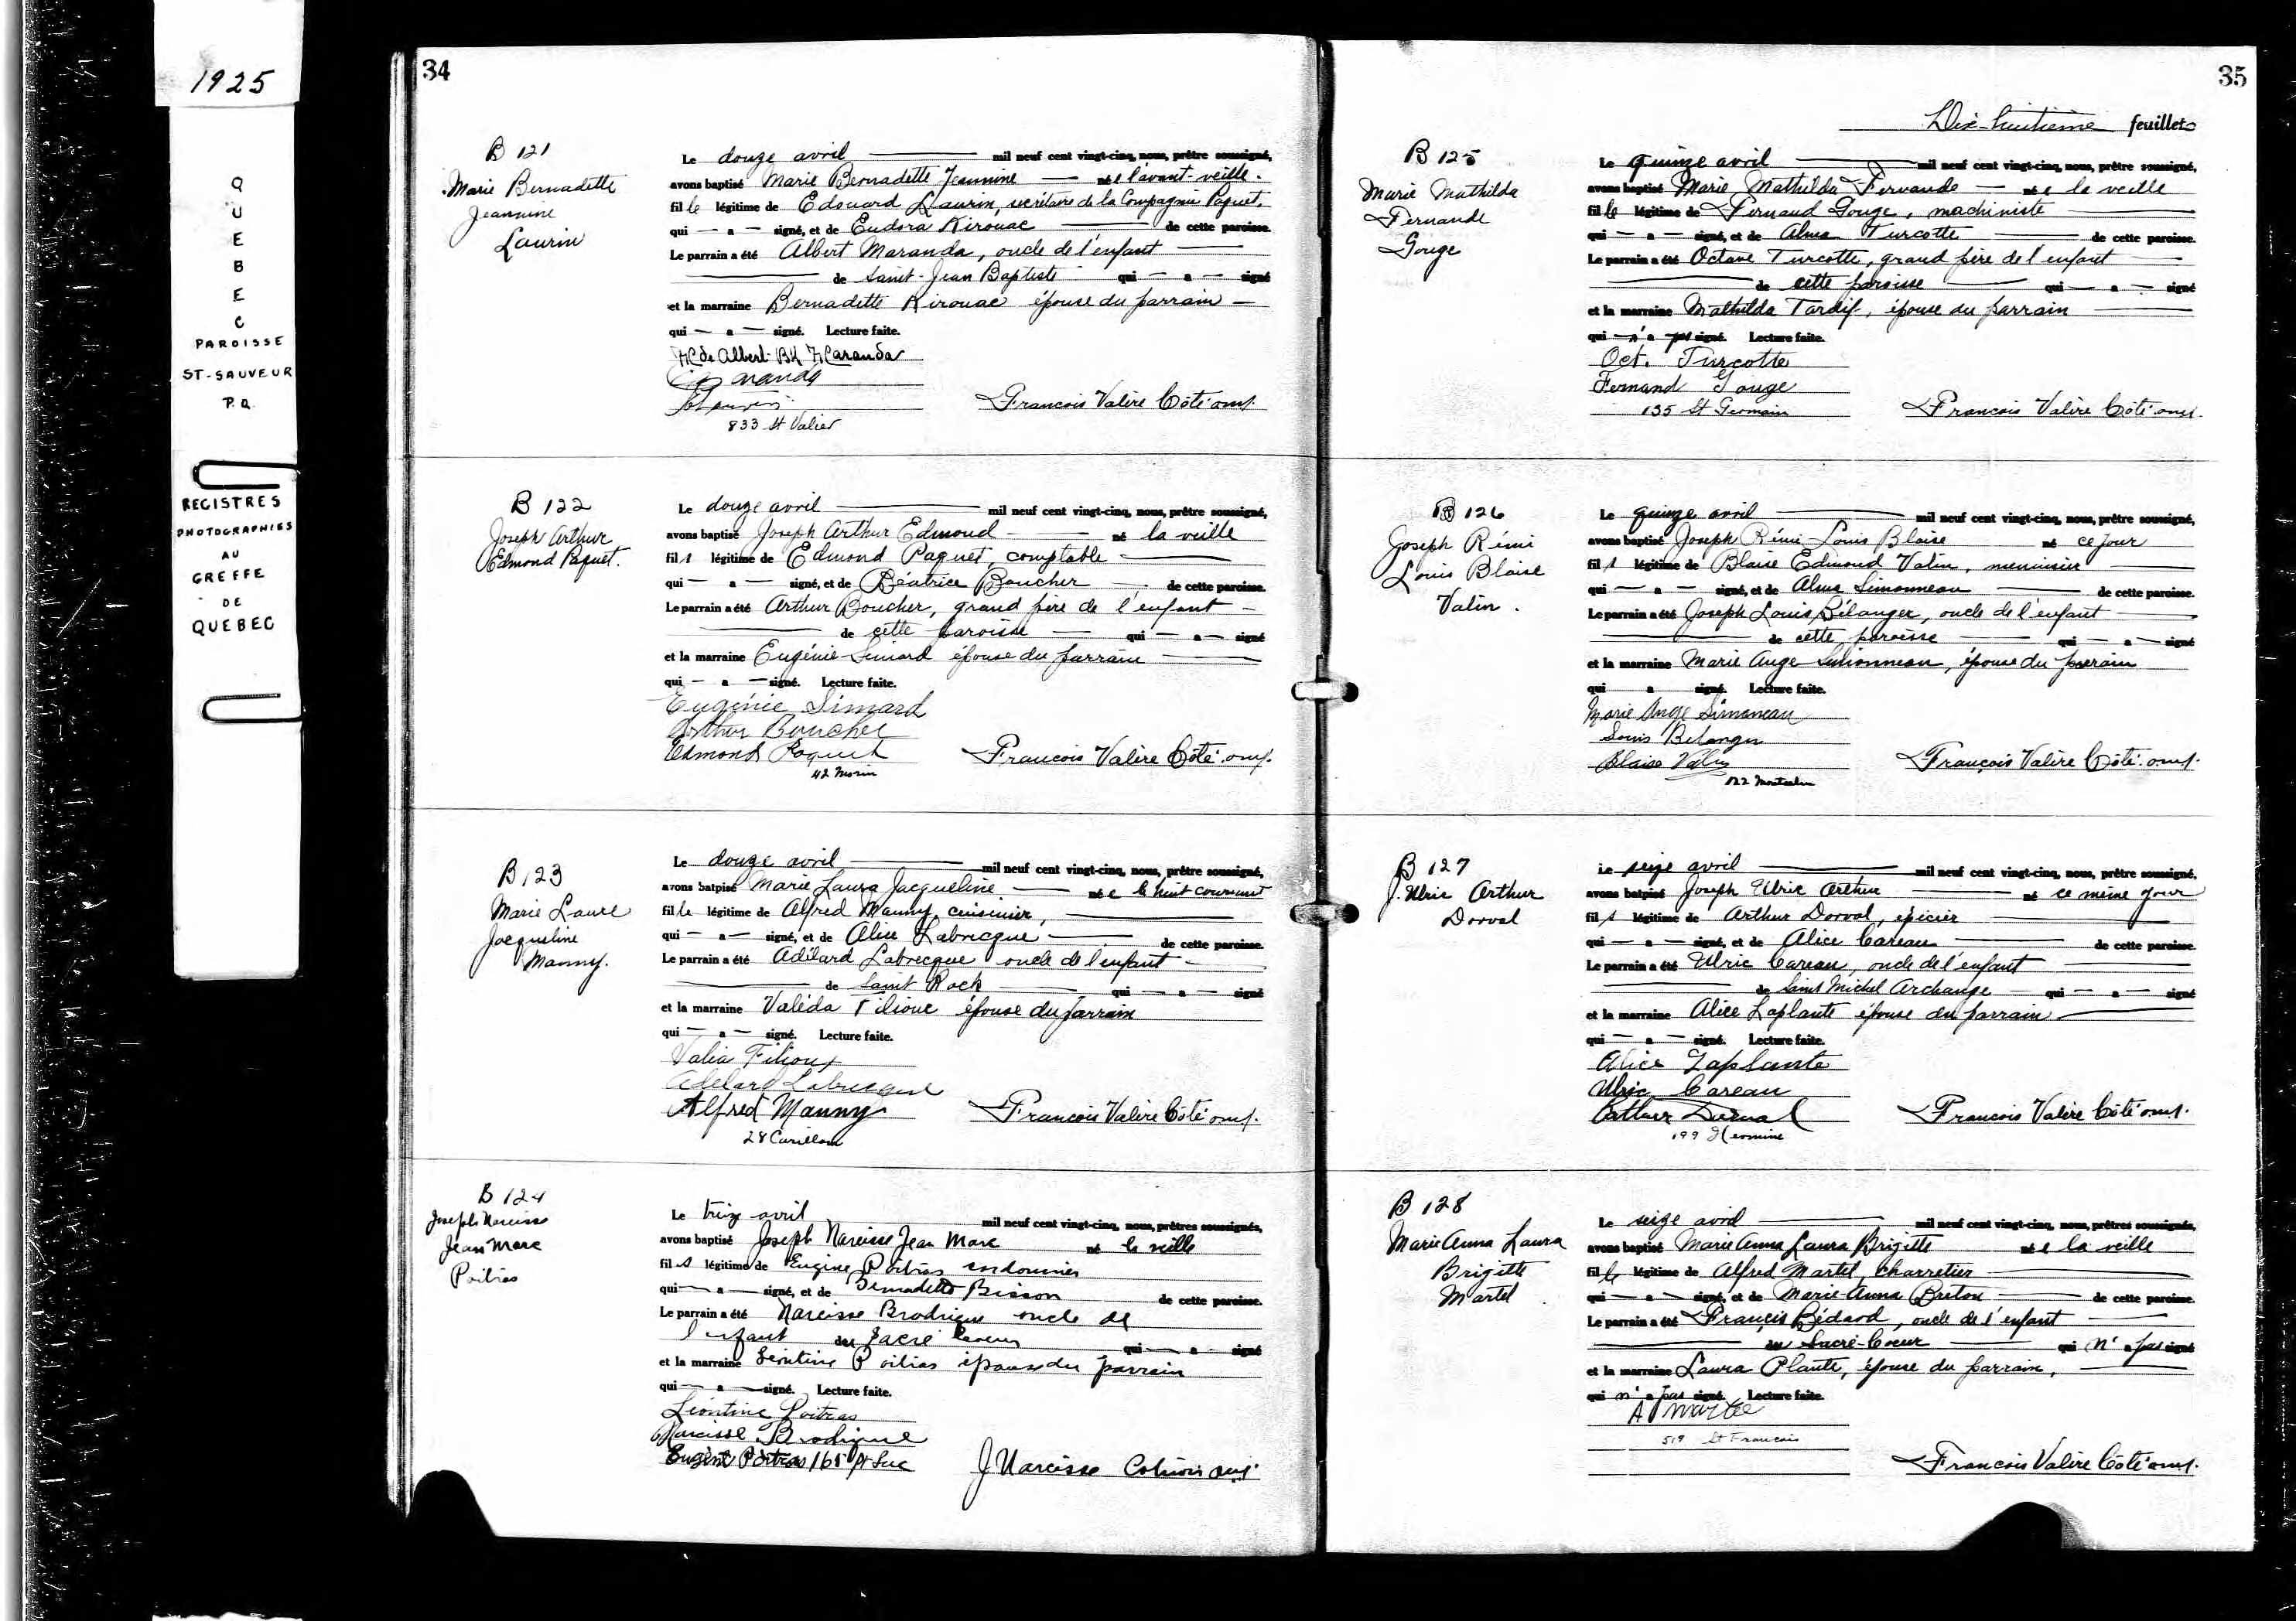 1925
QUEBEC
PAROISSE
ST-SAUVEUR
P.Q.
REGISTRES
PHOTOGRAPHIES
AU
GREFFE
DE
QUEBEC
34
B 121
Marie Bernadette
Jeannine
Laurin
Le douze avril mil neuf cent vingt-cinq, nous, prêtre soussigné,
avons baptisé Marie Bernadette Jeannine née l'avant-veille.
fille légitime de Edouard Laurin, secrétaire de la Compagnie Paquet,
qui — a — signé, et de Eudora Kirouac de cette paroisse.
Le parrain a été Albert Maranda, oncle de l'enfant
de Saint-Jean Baptiste qui — a — signé
et la marraine Bernadette Kirouac épouse du parrain —
qui — a — signé. Lecture faite.
Albert Maranda
François Valère Côté omi.
833 St Valier
B 122
Joseph Arthur
Edmond Paquet.
Le douze avril mil neuf cent vingt-cinq, nous, prêtre soussigné,
avons baptisé Joseph Arthur Edmond né la veille
fils légitime de Edmond Paquet, comptable
qui — a — signé, et de Béatrice Boucher de cette paroisse.
Le parrain a été Arthur Boucher, grand père de l'enfant —
de cette paroisse qui — a — signé
et la marraine Eugénie Simard épouse du parrain
qui — a — signé. Lecture faite.
Eugénie Simard
Arthur Boucher
Edmond Paquet François Valère Côté omi.
42 Morin
B 123
Marie Laure
Jacqueline
Manny.
Le douze avril mil neuf cent vingt-cinq, nous, prêtre soussigné,
avons batpisé Marie Laura Jacqueline née le huit courant
fille légitime de Alfred Manny, cuisinier,
qui — a — signé, et de Alice Labrecque de cette paroisse.
Le parrain a été Adélard Labrecque oncle de l'enfant —
de Saint Roch qui — a — signé
et la marraine Valéda Filion épouse du parrain
qui — a — signé. Lecture faite.
Adelard Labrecque
Alfred Manny François Valère Côté omi.
28 Carillon
B 124
Joseph Narcisse
Jean Marc
Poitras
Le treize avril mil neuf cent vingt-cinq, nous, prêtres soussignés,
avons baptisé Joseph Narcisse Jean Marc né la veille
fils légitime de Eugène Poitras cordonnier
qui — a — signé, et de Bernadette Bisson de cette paroisse.
Le parrain a été Narcisse Brodrigue oncle de
l'enfant du Sacré Coeur qui — a — signé
et la marraine Léontine Poitras épouse du parrain
qui — a — signé. Lecture faite.
Léontine Poitras
Narcisse Brodrigue
Eugène Poitras 165 St Luc J Narcisse omi
35
Dix-huitième feuillet
B 125
Marie Mathilda
Fernande
Gouge
Le quinze avril mil neuf cent vingt-cinq, nous, prêtre soussigné,
avons baptisé Marie Mathilda Fernande — née la veille
fille légitime de Fernand Gouge, machiniste
qui — a — signé, et de Alma Turcotte de cette paroisse.
Le parrain a été Octave Turcotte, grand père de l'enfant
de cette paroisse qui — a — signé
et la marraine Mathilda Tardif, épouse du parrain
qui n'a pas signé. Lecture faite.
Oct. Turcotte
Fernand Gouge
135 St Germain François Valère Côté omi.
B 126
Joseph Rémi
Louis Blaise
Valin.
Le quinze avril mil neuf cent vingt-cinq, nous, prêtre soussigné,
avons baptisé Joseph Rémi Louis Blaise né ce jour
fils légitime de Blaise Edmond Valin, menuisier
qui — a — signé, et de Alma Simonneau de cette paroisse.
Le parrain a été Joseph Louis Bélanger, oncle de l'enfant
de cette paroisse qui — a — signé
et la marraine Marie Ange Simonneau, épouse du parrain
qui a signé. Lecture faite.
Marie Ange Simoneau
Louis Belanger
Blaise Valin François Valère Côté omi.
122 Montcalm
B 127
J. Ulric Arthur
Dorval
Le seize avril mil neuf cent vingt-cinq, nous, prêtre soussigné,
avons batpisé Joseph Ulric Arthur né ce même jour
fils légitime de Arthur Dorval, épicier
qui — a — signé, et de Alice Careau de cette paroisse.
Le parrain a été Ulric Careau, oncle de l'enfant
de Saint Michel Archange — qui — a — signé
et la marraine Alice Laplante épouse du parrain
qui — a — signé. Lecture faite.
Alice Laplante
Ulric Careau
Arthur Dorval François Valère Côté omi.
199 Hermine
B 128
Marie Anna Laura
Brigitte
Martel
Le seize avril mil neuf cent vingt-cinq, nous, prêtres soussignés,
avons baptisé Marie Anna Laura Brigitte née la veille
fille légitime de Alfred Martel, charretier
qui — a — signé, et de Marie-Anna Breton de cette paroisse.
Le parrain a été François Bédard, oncle de l'enfant
du Sacré-Coeur qui n'a pas signé
et la marraine Laura Plante, épouse du parrain,
qui n'a pas signé. Lecture faite.
A Martel
519 St François
François Valère Côté omi.